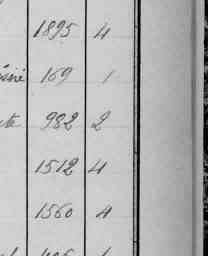 1895 4
169 1
982 2
1512 4
1560 4